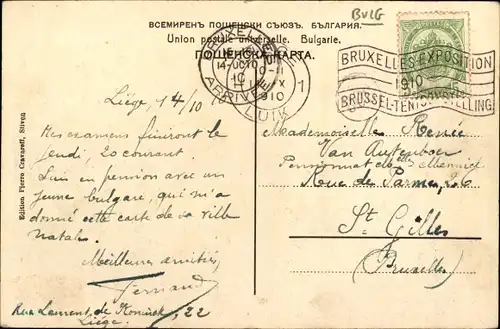 BULG
ВСЕМИРЕНЪ ПОЩЕНСКИ СЪЮЗЪ. БЪЛГАРИЯ.
Union postale universelle. Bulgarie.
ПОЩЕНСКА КАРТА.
BRUXELLES
14-OCTO
1910
ARRIVEE
LUIK
1910
1
BRUXELLES-EXPOSITION
1910
BRUSSEL-TENTOONSTELLING
Liége, 14/10
Mes examens finiront le
jeudi, 20 courant.
Suis en pension avec un
jeune bulgare, qui m'a
donné cette carte de sa ville
natale.
Meilleures amitiés,
Fernand
Rue Laurent de Koninck, 22
Liége.
Mademoiselle Renée
Van Autenboer
Pensionnat de Melle
Rue de Parme, 26
St Gilles
(Bruxelles)
Edition Pierre Cravareff, Sliven